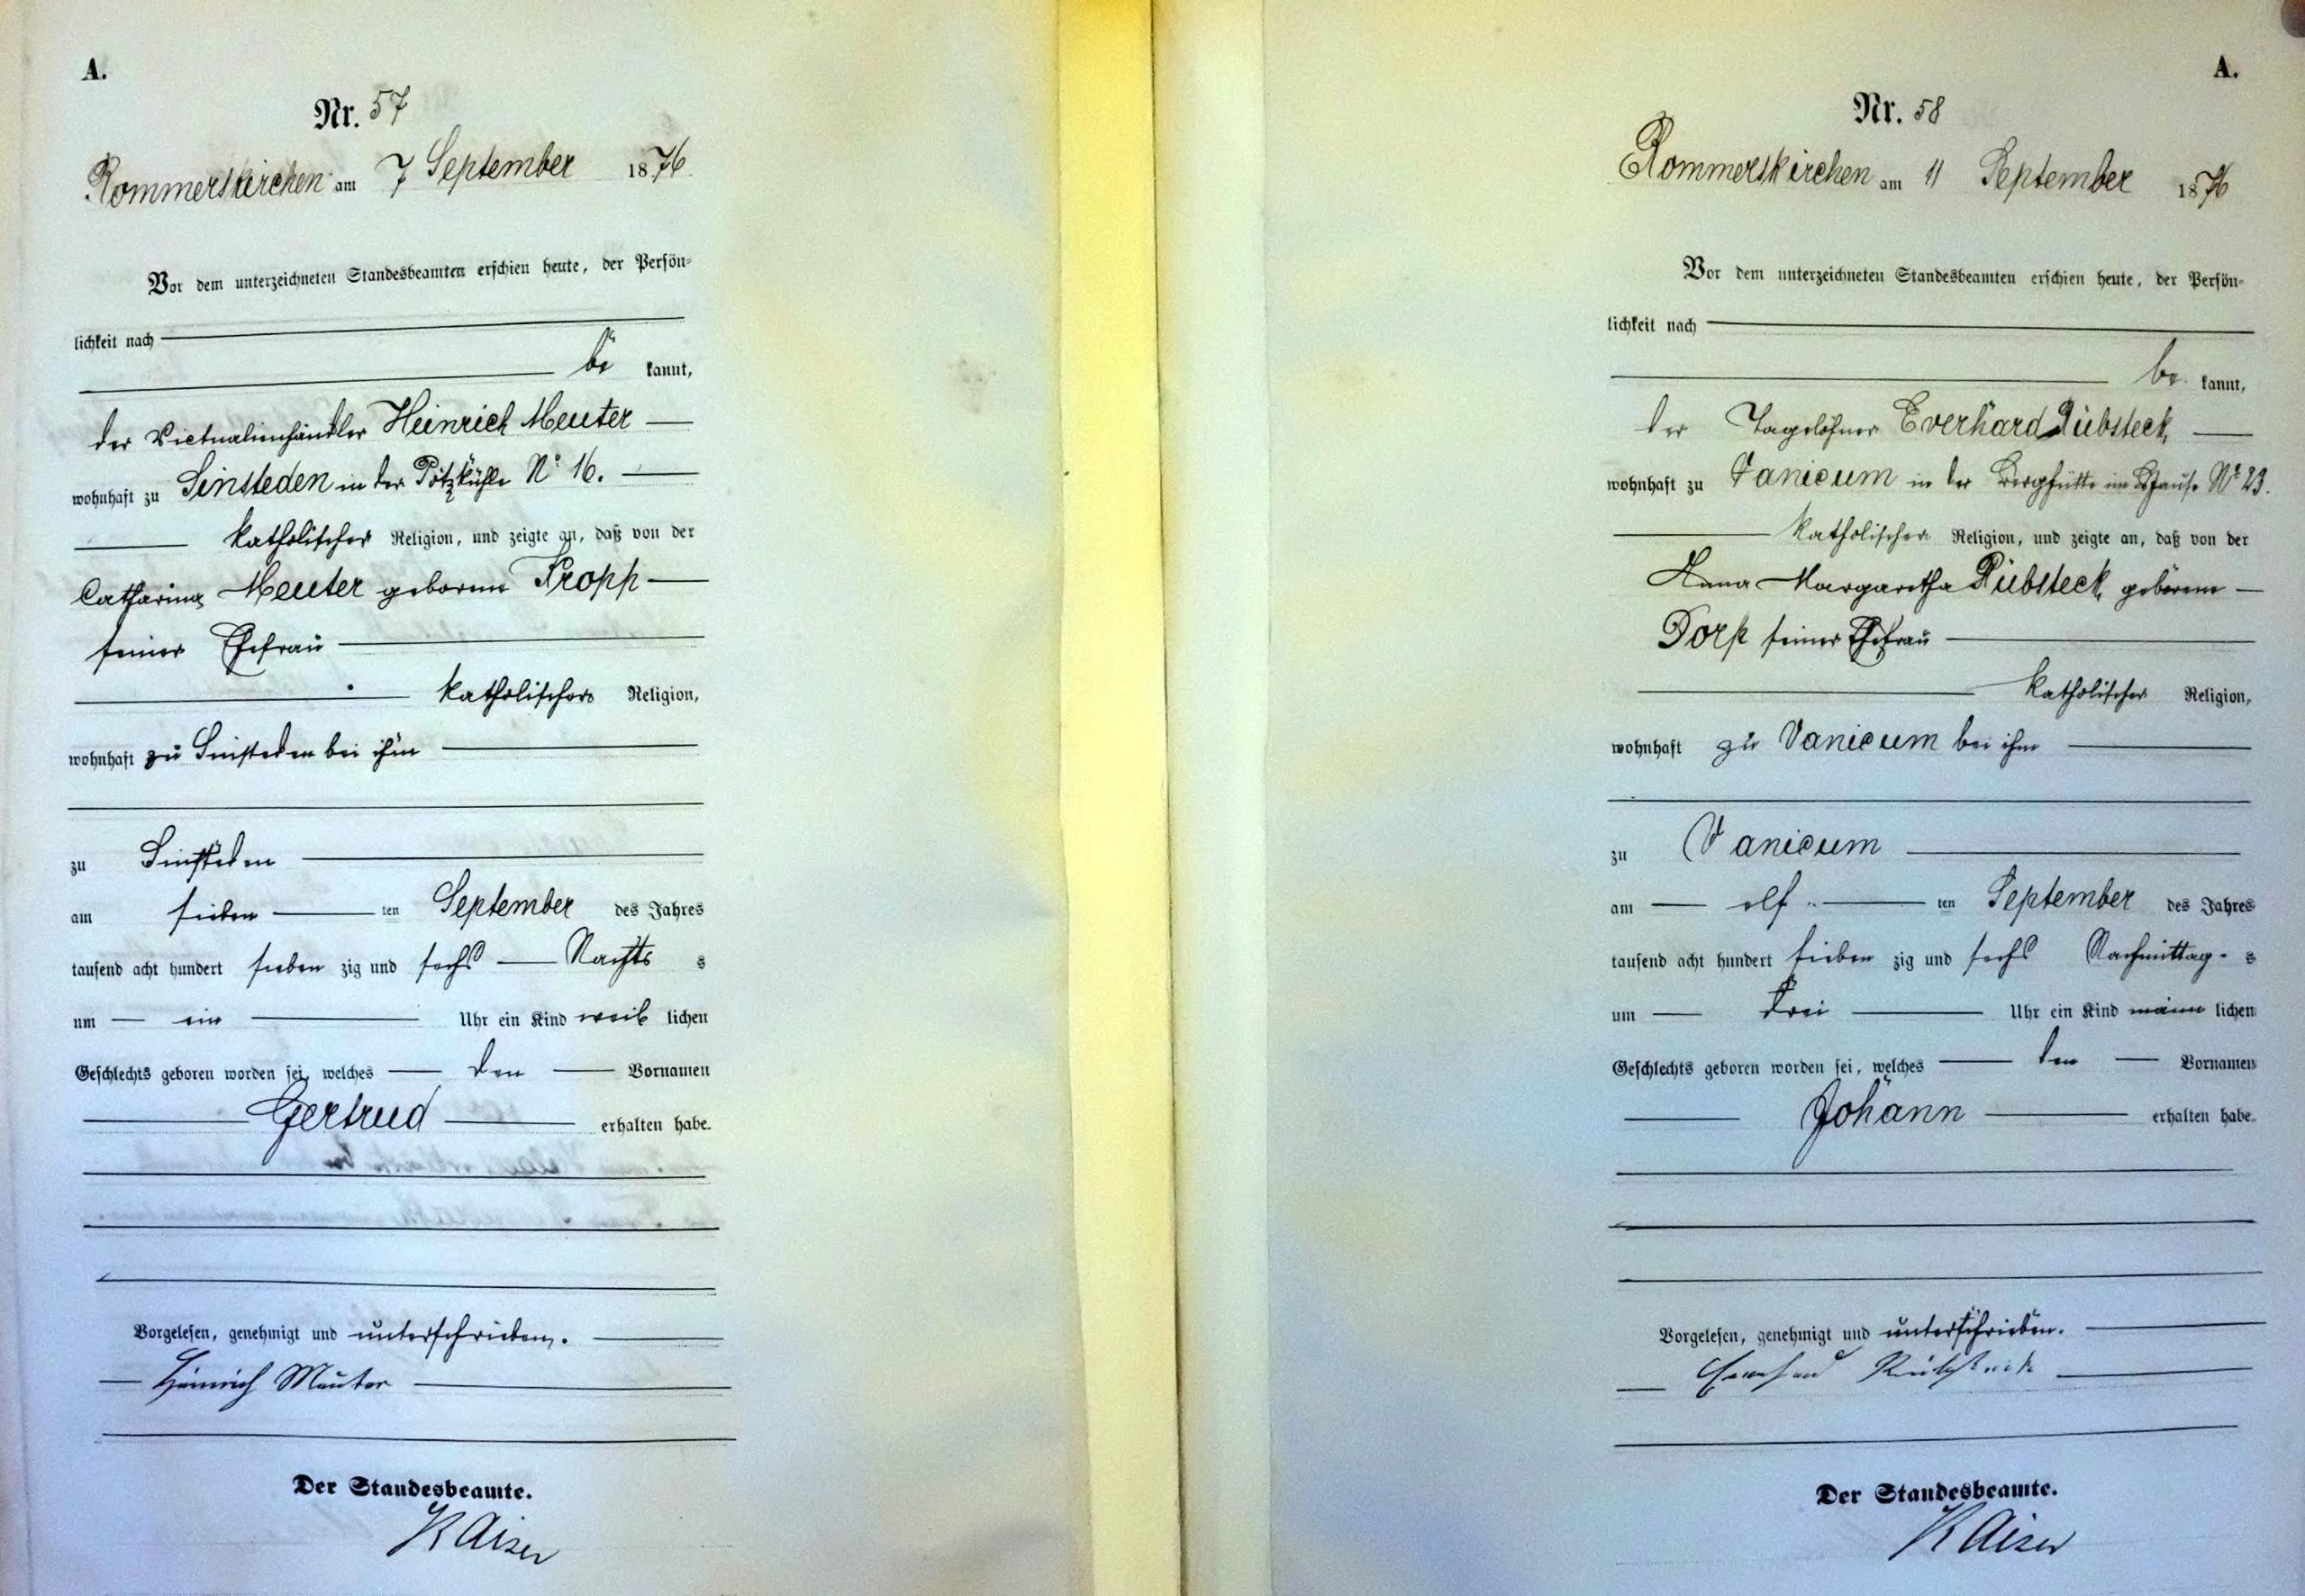 A.
Nr. 57
Rommerskirchen am 7 September 1876.
Vor dem unterzeichneten Standesbeamten erschien heute, der Persön-
lichkeit nach
be kannt,
der Victualienhändler Heinrich Meuter
wohnhaft zu Sinsteden in der Pötzkuhle No 16.
katholischer Religion, und zeigte an, daß von der
Catharina Meuter geborene Kropp
seiner Ehefrau
katholischer Religion,
wohnhaft zu Sinsteden bei ihm
zu Sinsteden
am sieben ten September des Jahres
tausend acht hundert sieben zig und sechs Nachts s
um ein Uhr ein Kind weib lichen
Geschlechts geboren worden sei, welches den Vornamen
Gertrud erhalten habe.
Vorgelesen, genehmigt und unterschrieben.
Heinrich Meuter
Der Standesbeamte.
Kaiser
A.
Nr. 58
Rommerskirchen am 11 September 1876
Vor dem unterzeichneten Standesbeamten erschien heute, der Persön-
lichkeit nach
be kannt,
der Tagelöhner Everhard Rübsteck
wohnhaft zu Vanicum in der Berghütte im Hause No 23.
katholischer Religion, und zeigte an, daß von der
Anna Margaretha Rübsteck, geborene
Dorp seiner Ehefrau
katholischer Religion,
wohnhaft zu Vanicum bei ihm
zu Vanicum
am elf ten September des Jahres
tausend acht hundert sieben zig und sechs Nachmittag s
um drei Uhr ein Kind männ lichen
Geschlechts geboren worden sei, welches den Vornamen
Johann erhalten habe.
Vorgelesen, genehmigt und unterschrieben.
Everhard Rübsteck
Der Standesbeamte.
Kaiser